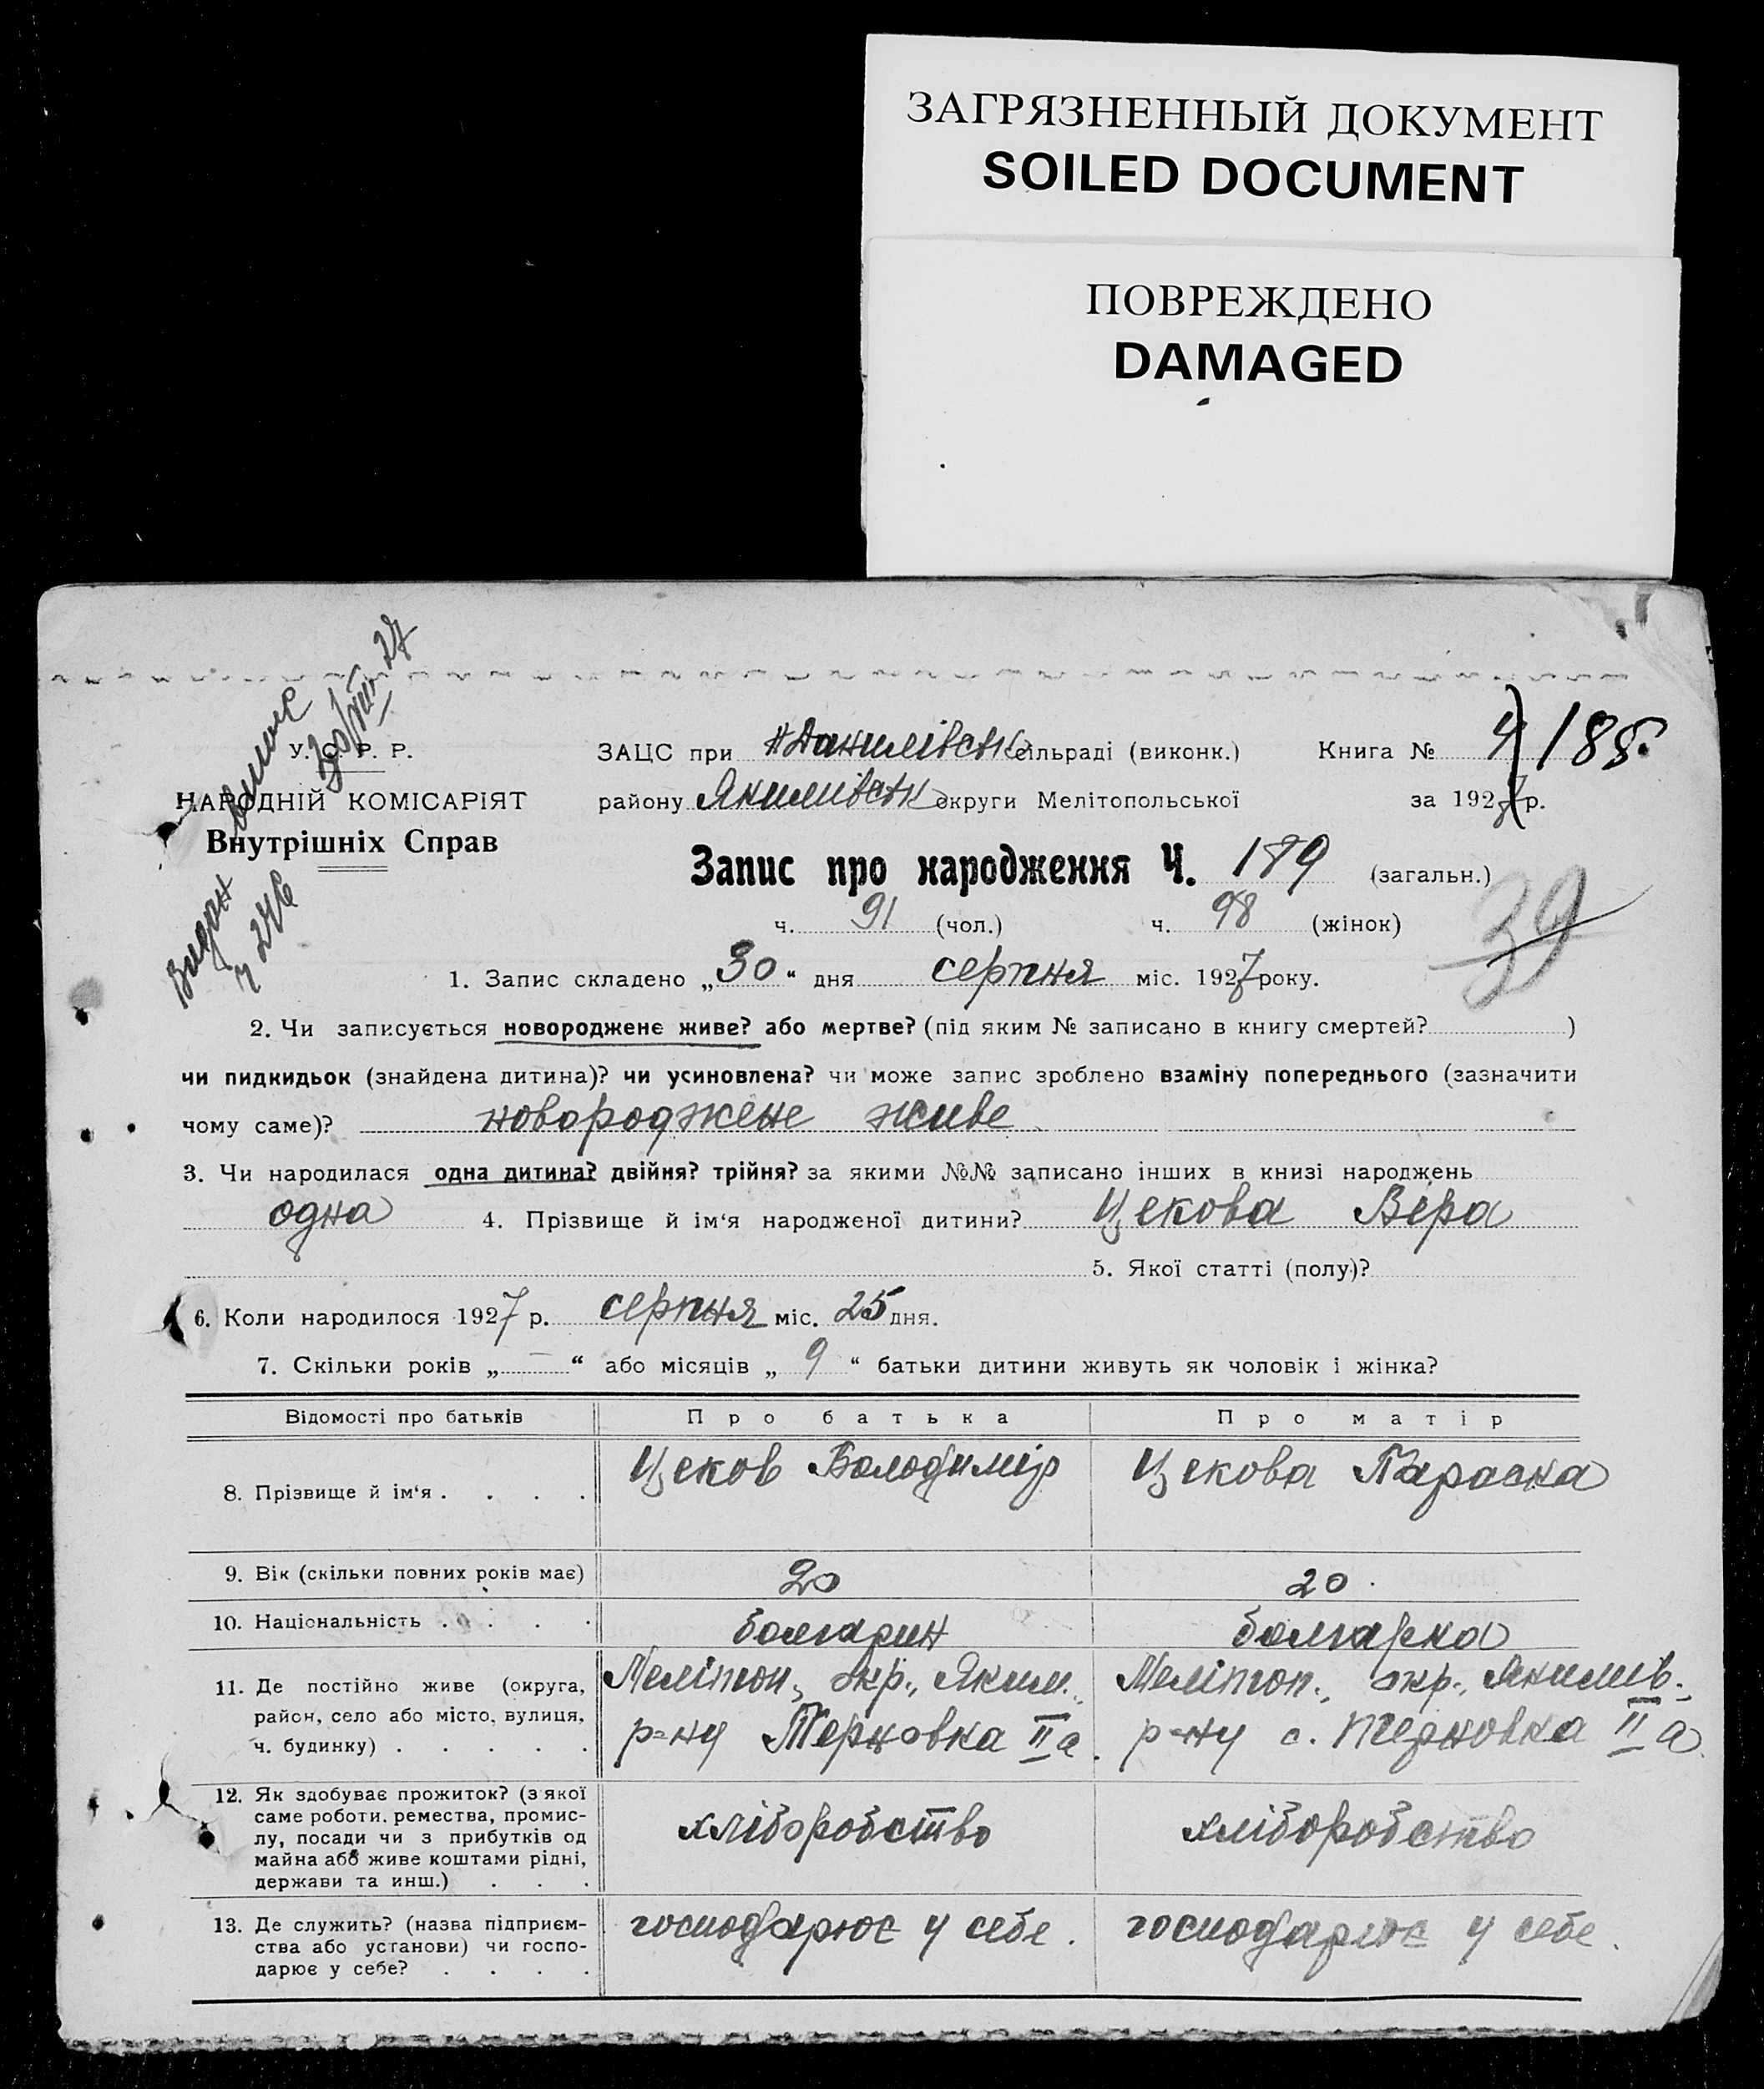 ЗАГРЯЗНЕННЫЙ ДОКУМЕНТ
SOILED DOCUMENT
ПОВРЕЖДЕНО
DAMAGED
У. С. Р. Р.
НАРОДНІЙ КОМІСАРІЯТ
Внутрішніх Справ
Видан
ч 246
30/VIII 27
ЗАЦС при Н Данилівськ сільраді (виконк.) Книга № 4 185.
району Якимівськ округи Мелітопольської за 1927 р.
Запис про народження Ч. 189 (загальн.)
ч. 91 (чол.) ч. 98 (жінок)
39
1. Запис складено „30“ дня серпня міс. 1927 року.
2. Чи записується новороджене живе? або мертве? (під яким № записано в книгу смертей? )
чи пидкидьок (знайдена дитина)? чи усиновлена? чи може запис зроблено взаміну попереднього (зазначити
чому саме)? новороджене живе
3. Чи народилася одна дитина? двійня? трійня? за якими №№ записано інших в книзі народжень
одна 4. Прізвище й ім‘я народженої дитини? Цекова Віра
5. Якої статті (полу)?
6. Коли народилося 1927 р. серпня міс. 25 дня.
7. Скільки років „ — “ або місяців „ 9 “ батьки дитини живуть як чоловік і жінка?
Відомості про батьків Про батька Про матір
8. Прізвище й ім‘я . . . . Цеков Володимір Цекова Параска
9. Вік (скільки повних років має) 20 20.
10. Національність . . . . болгарин болгарка
11. Де постійно живе (округа, Мелітоп., окр., Яким. Мелітоп., окр., Якимів.
район, село або місто, вулиця, р-ну Терновка II а. р-ну с. Терновка II а.
ч. будинку) . . . . .
12. Як здобуває прожиток? (з якої
саме роботи, ремества, промис-
лу, посади чи з прибутків од хліборобство хліборобство
майна або живе коштами рідні,
держави та инш.) . . .
13. Де служить? (назва підприєм- господарює у себе. господарює у себе.
ства або установи) чи госпо-
дарює у себе? . . . .